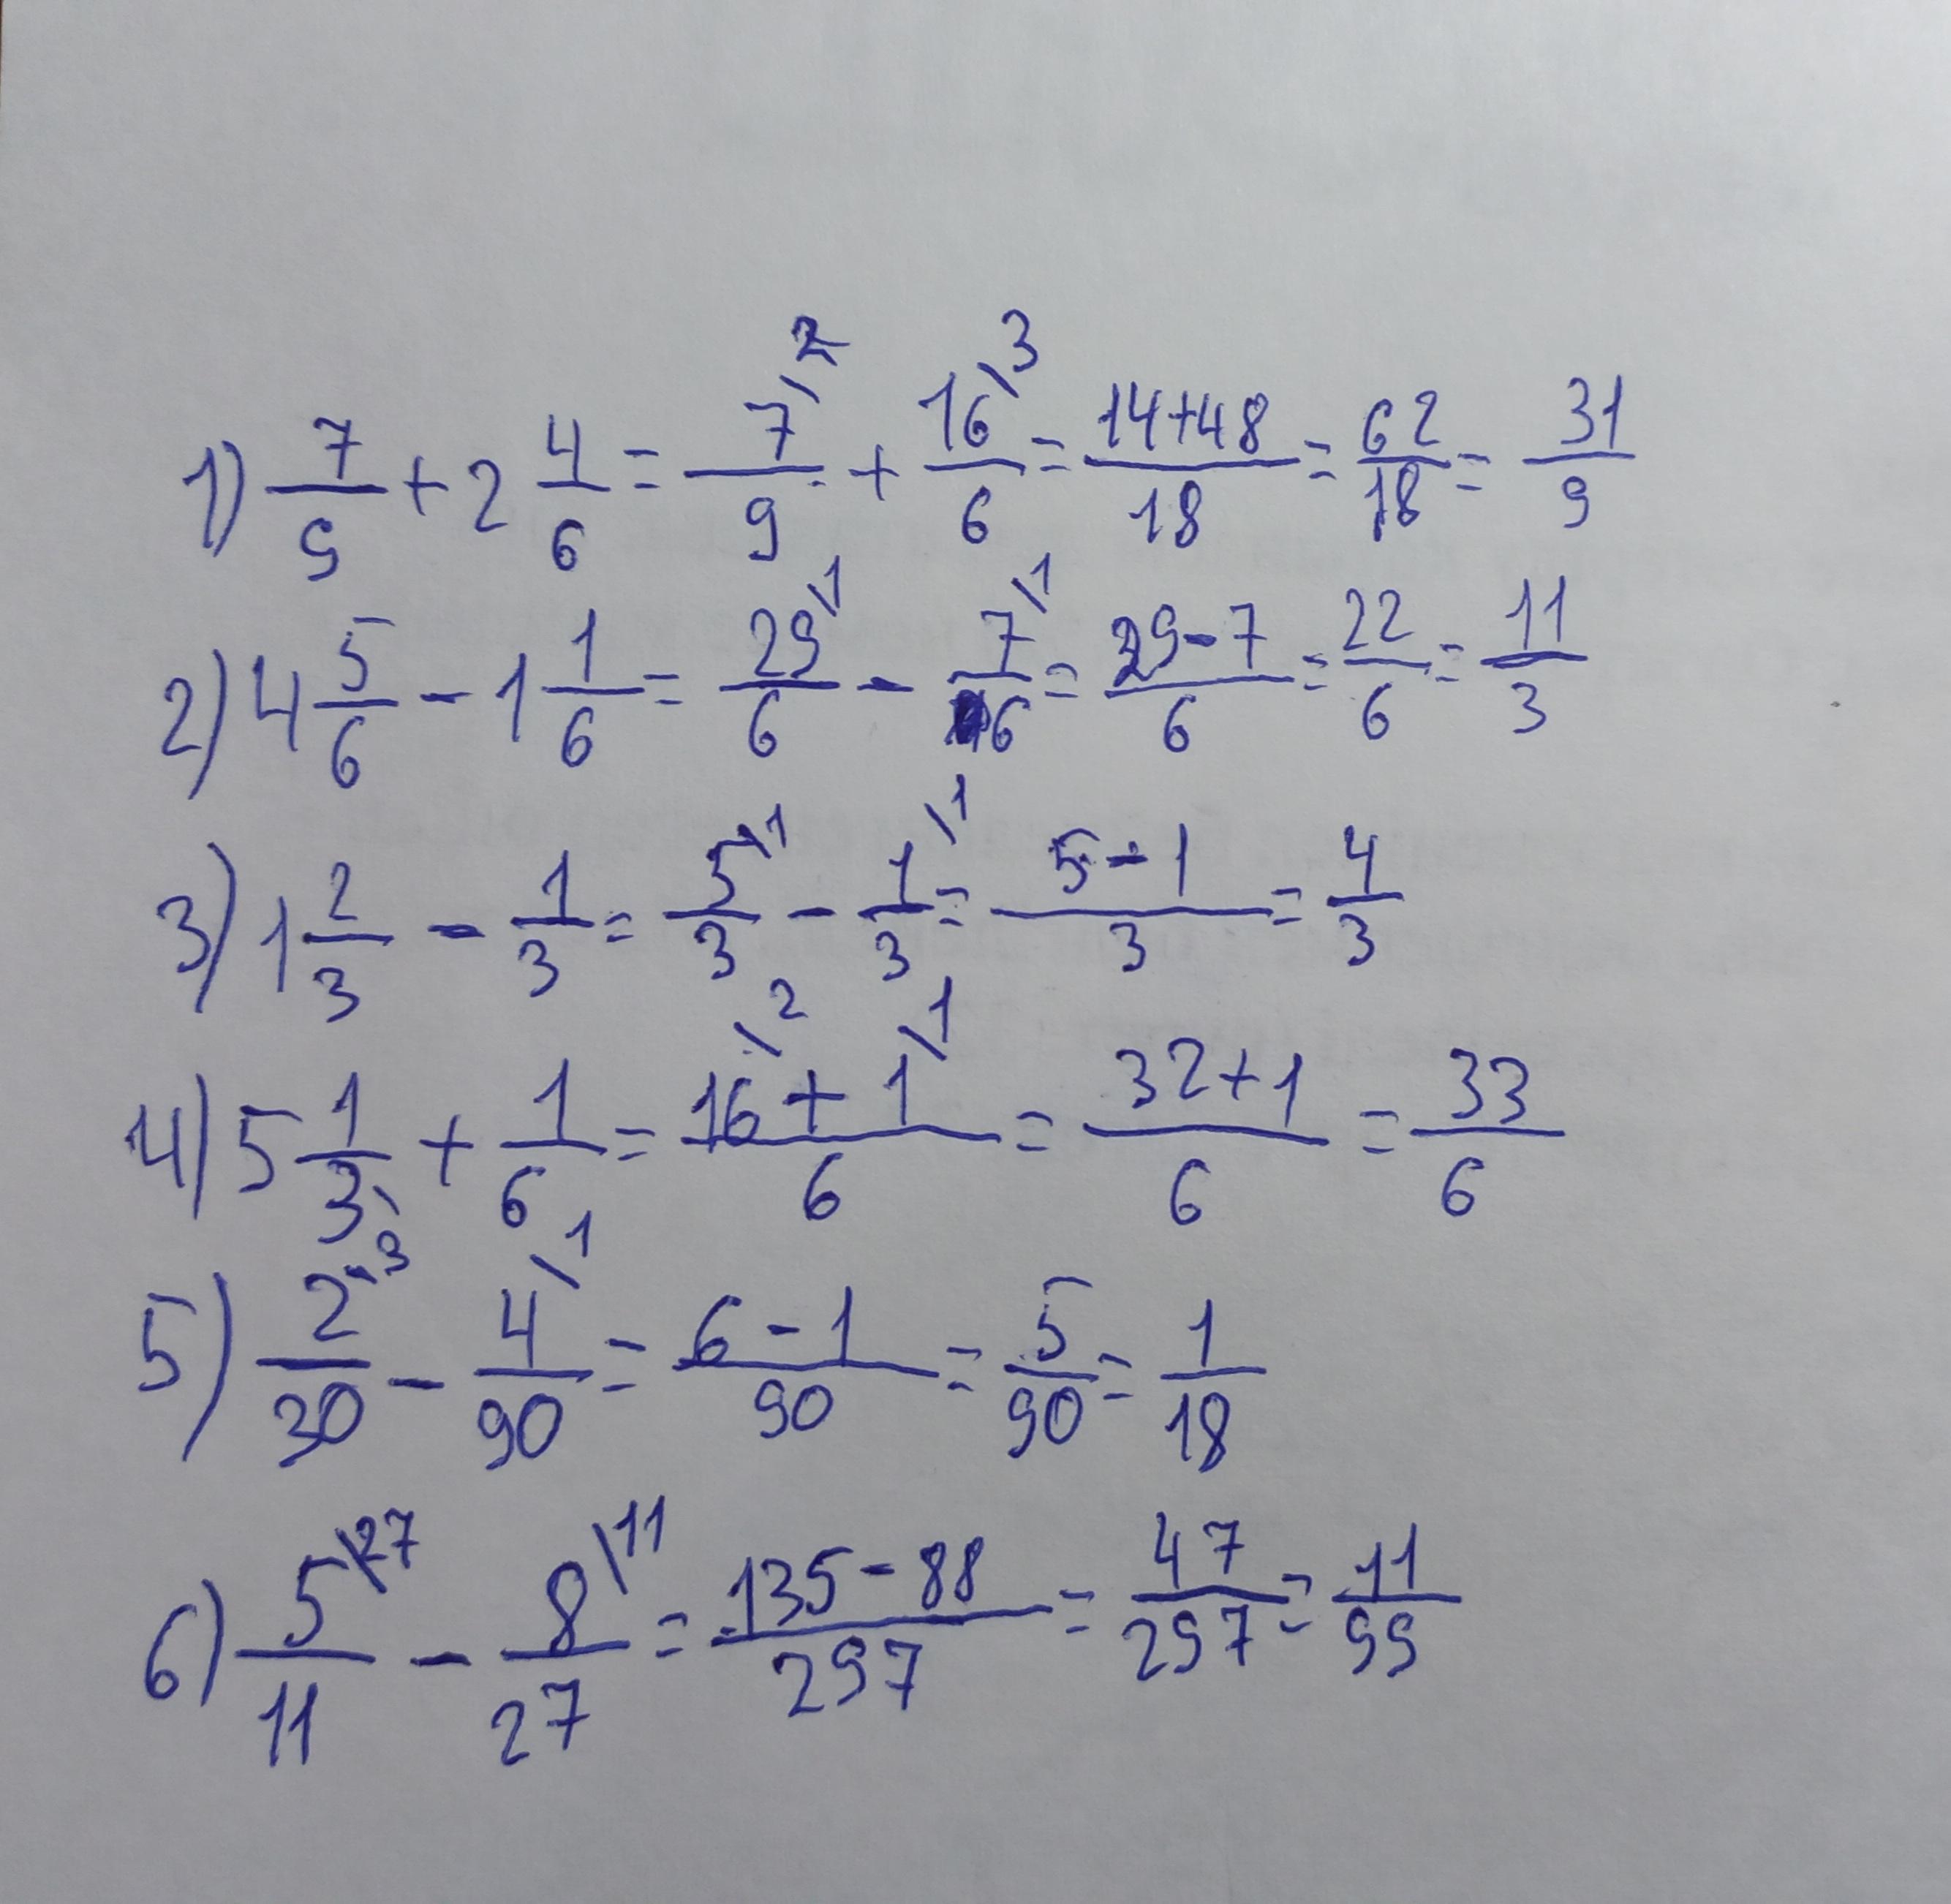 1) 7/9 + 2 4/6 = 7\2/9 + 16\3/6 = 14+48/18 = 62/18 = 31/9
2) 4 5/6 - 1 1/6 = 29\1/6 - 7\1/6 = 29-7/6 = 22/6 = 11/3
3) 1 2/3 - 1/3 = 5\1/3 - 1\1/3 = 5-1/3 = 4/3
4) 5 1/3 + 1/6 = 16\2 + 1\1/6 = 32+1/6 = 33/6
5) 2\3/30 - 4\1/90 = 6-1/90 = 5/90 = 1/18
6) 5\27/11 - 8\11/27 = 135-88/297 = 47/297 = 11/99